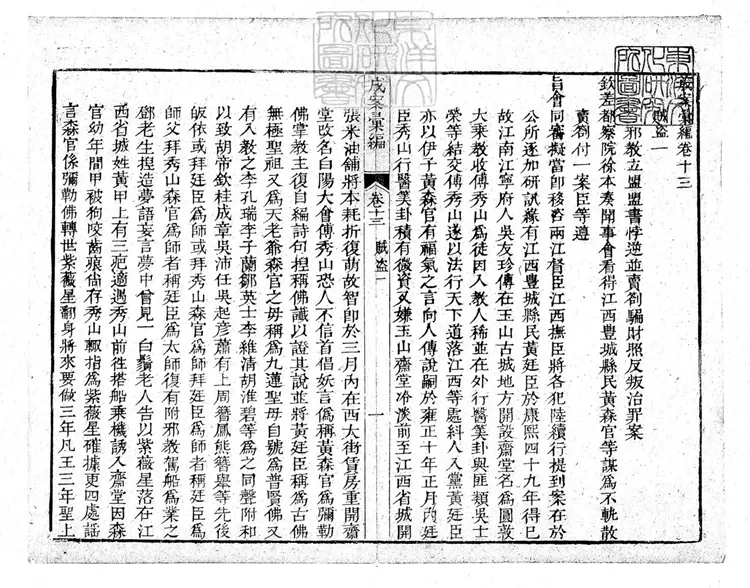 成案彙編卷十三
賊盜一
邪教立盟盟書悖逆並賣劄騙財照反叛治罪案
欽差都察院徐本奏聞事會看得江西豐城縣民黃森官等謀為不軌散
賣劄付一案臣等遵
旨會同審擬當即移咨兩江督臣江西撫臣將各犯陸續行提到案在於
公所逐加研訊緣有江西豐城縣民黃廷臣於康熙四十九年得已
故江南江寧府人吳友珍傳在玉山古城地方開設齋堂名為圓敦
大乘教收傅秀山為徒因入教人稀並在外行醫筭卦與匪類吳士
榮等結交傅秀山遂以法行天下道落江西等處糾人入黨黃廷臣
亦以伊子黃森官有福氣之言向人傳說嗣於雍正十年正月內廷
臣秀山行醫筭卦積有微資又嫌玉山齋堂冷淡前至江西省城開
成案彙編 卷十三 賊盜一 一
張米油舖將本耗折復萌故智即於三月內在西大街賃房重開齋
堂改名白陽大會傅秀山恐人不信首倡妖言僞稱黃森官為彌勒
佛掌教主復自編詩句捏稱佛讖以證其說並將黃廷臣稱為古佛
無極聖祖又為天老爺森官之母稱為九蓮聖母自號為普賢佛又
有入教之李孔瑞李子蘭鄒英士李維清胡淮碧等為之同聲附和
以致胡帝欽桂成章吳沛任吳起彥蕭有上周簪鳳熊簪舉等先後
皈依或拜廷臣為師或拜秀山森官為師拜廷臣為師者稱廷臣為
師父拜秀山森官為師者稱廷臣為太師復有附邪教駕船為業之
鄧老生捏造夢語妄言夢中曾見一白鬚老人告以紫薇星落在江
西省城姓黃甲上有三疤適遇秀山前往搭船乘機誘入齋堂因森
官幼年間甲被狗咬齒痕尚存秀山輒指為紫薇星確據更四處話
言森官係彌勒佛轉世紫薇星翻身將來要做三年凡王三年聖上